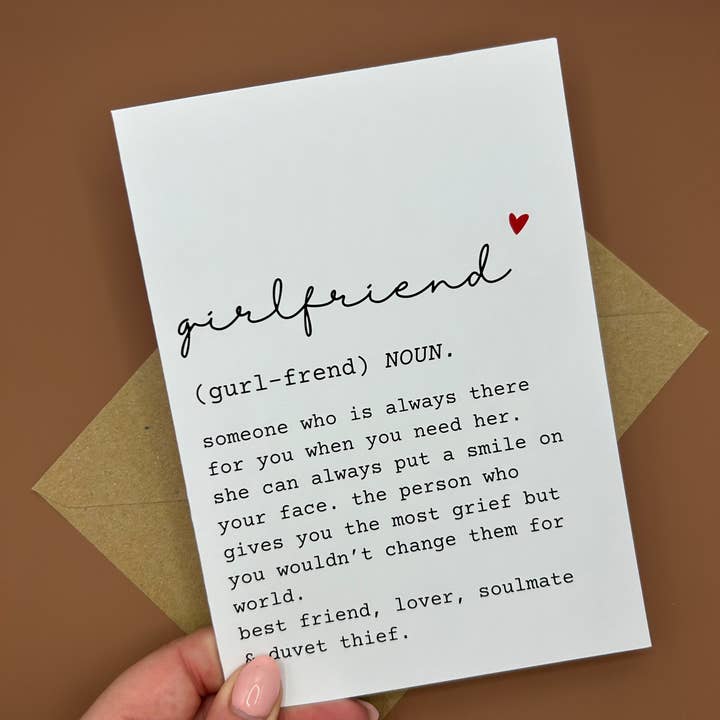 girlfriend
(gurl-frend) NOUN.
someone who is always there
for you when you need her.
she can always put a smile on
your face. the person who
gives you the most grief but
you wouldn't change them for
world.
best friend, lover, soulmate
& duvet thief.